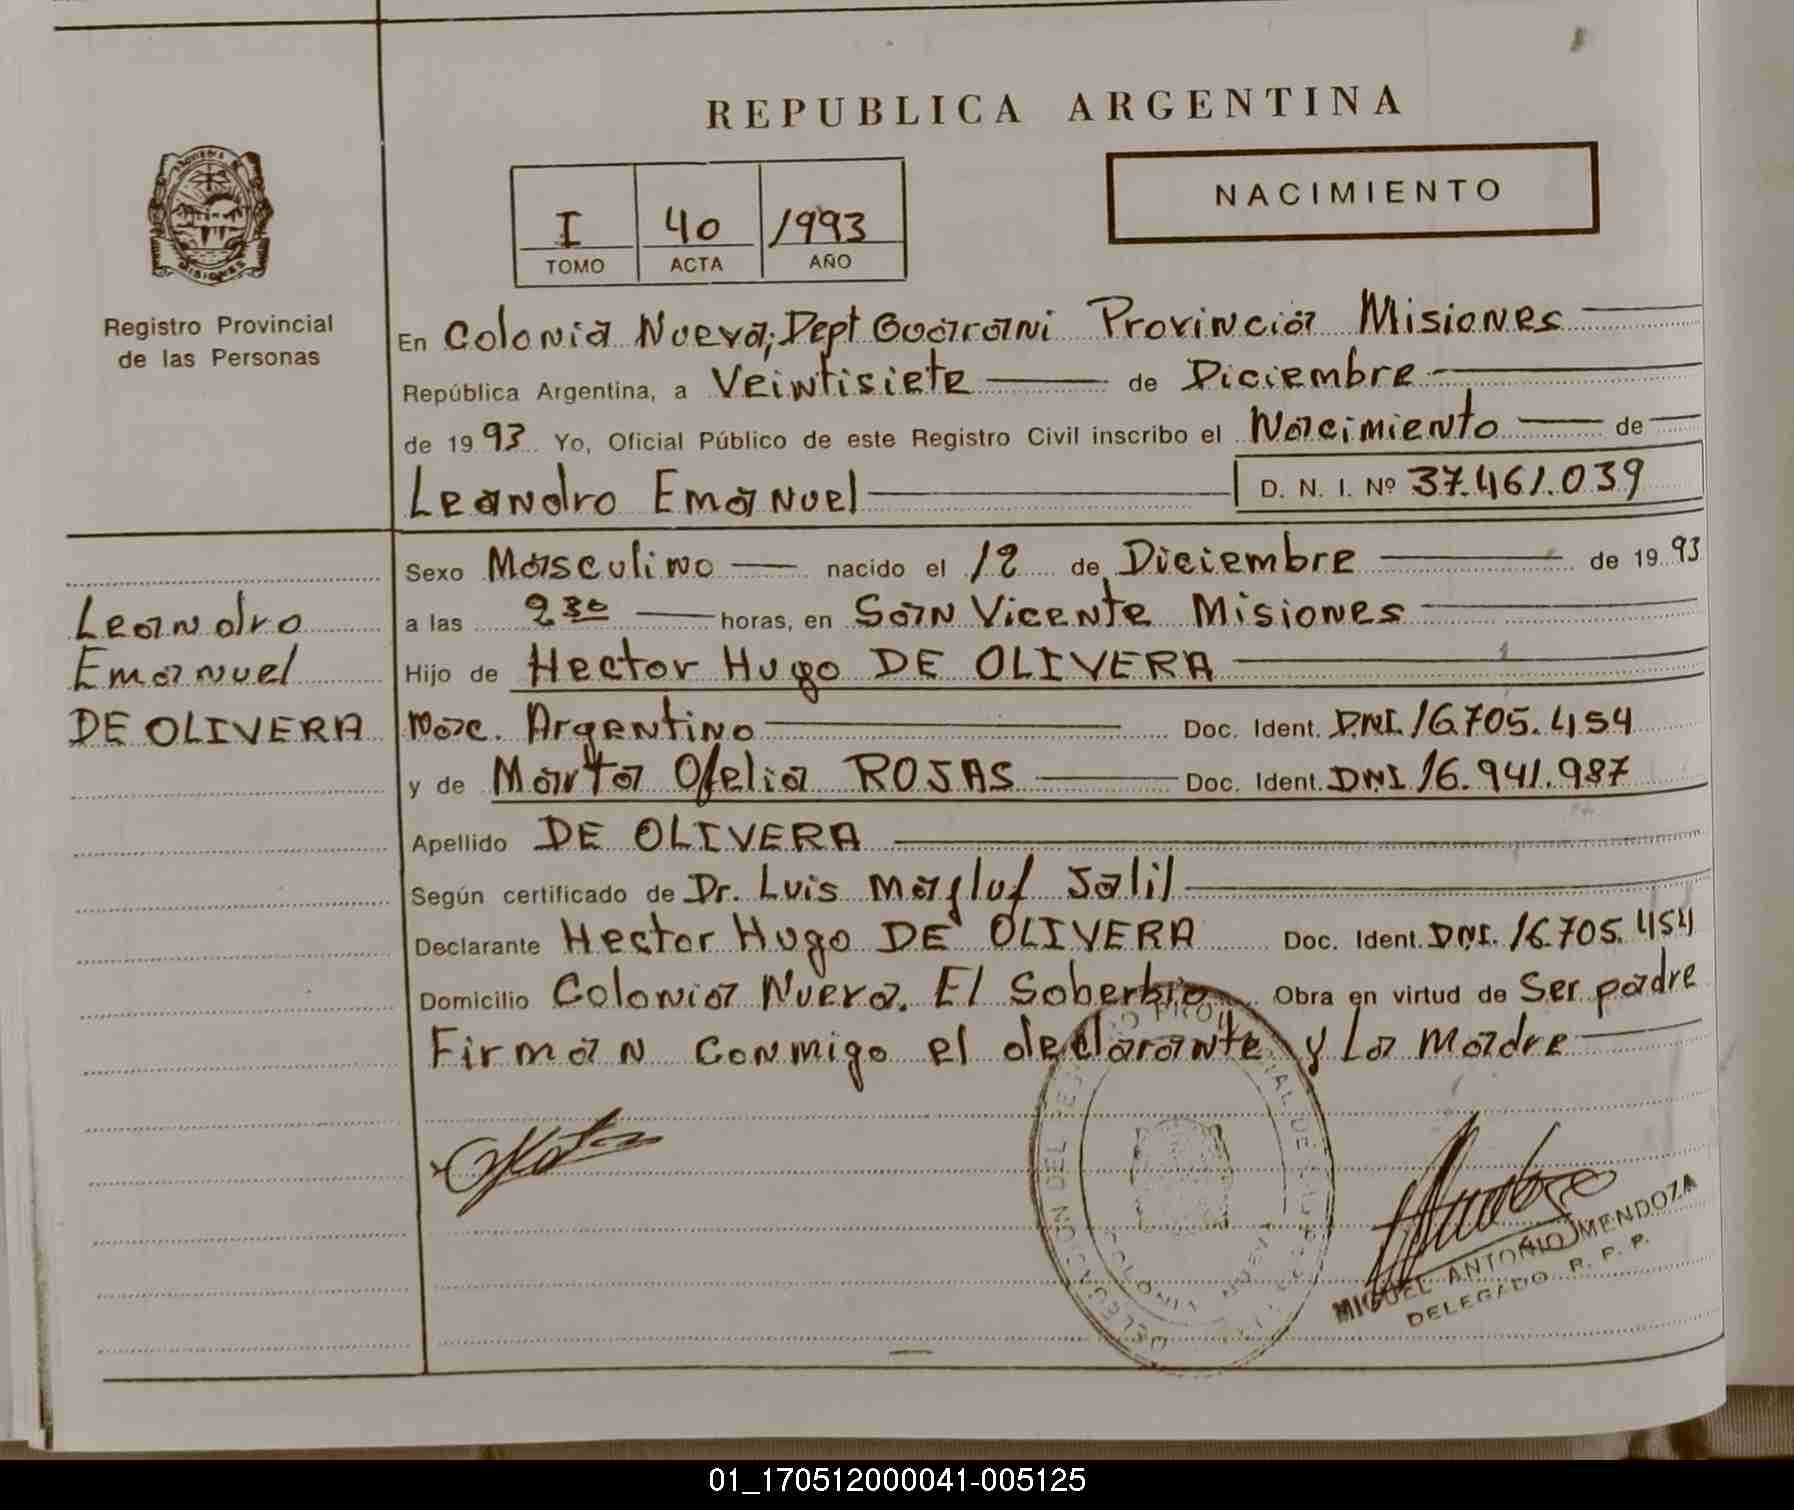 REPUBLICA ARGENTINA
NACIMIENTO
I 40 1993
TOMO ACTA AÑO
MISIONES
Registro Provincial
de las Personas
En Colonia Nueva; Dept Guarani Provincia Misiones
República Argentina, a Veintisiete de Diciembre
de 1993 Yo, Oficial Público de este Registro Civil inscribo el Nacimiento de
Leandro Emanuel D. N. I. Nº 37.461.039
Sexo Masculino nacido el 12 de Diciembre de 1993
a las 2 30 horas, en San Vicente Misiones
Hijo de Hector Hugo DE OLIVERA
Nac. Argentino Doc. Ident. DNI. 16.705.454
y de Marta Ofelia ROJAS Doc. Ident. DNI 16.941.987
Apellido DE OLIVERA
Según certificado de Dr. Luis Magluf Jalil
Declarante Hector Hugo DE OLIVERA Doc. Ident. DNI. 16.705.454
Domicilio Colonia Nueva. El Soberbio Obra en virtud de Ser padre
Firman conmigo el declarante y La Madre
Leandro
Emanuel
DE OLIVERA
DELEGACION DEL
COLONIA NUEVA
MIGUEL ANTONIO MENDOZA
DELEGADO R. P. P.
01_170512000041-005125